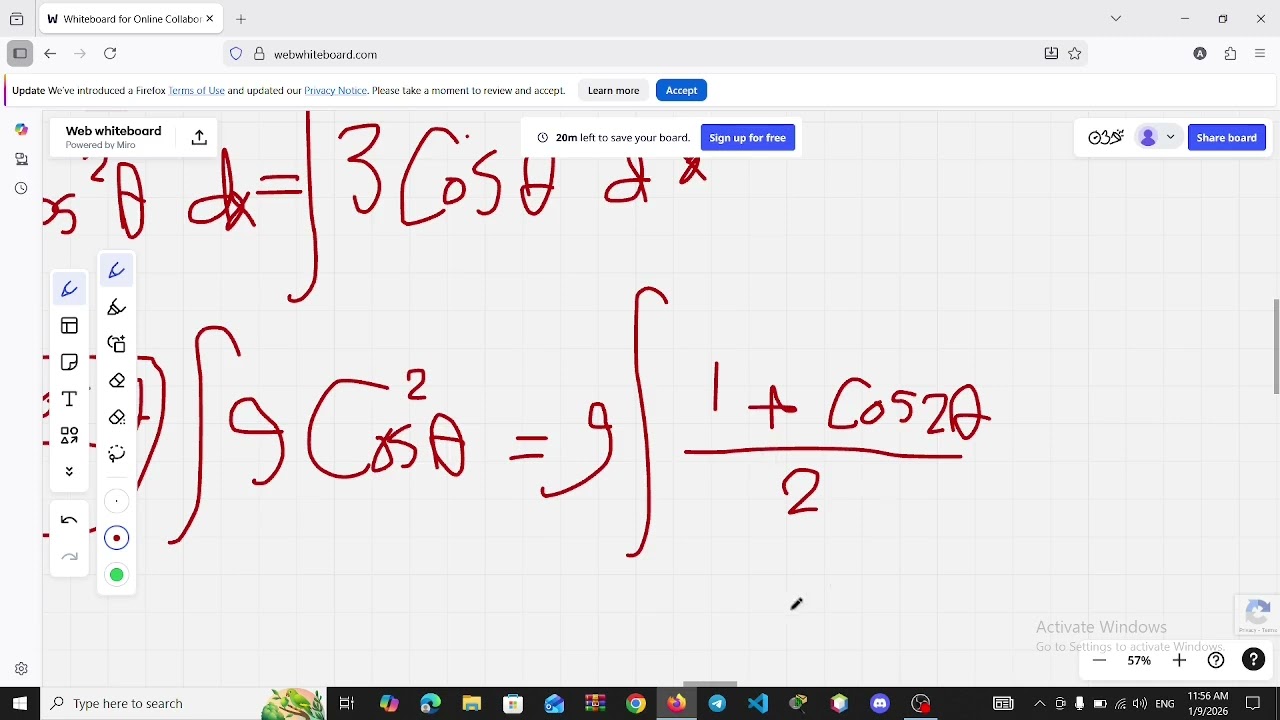 Whiteboard for Online Collabor
webwhiteboard.com
Update We've introduced a Firefox Terms of Use and updated our Privacy Notice. Please take a moment to review and accept. Learn more Accept
Web whiteboard
Powered by Miro
20m left to save your board. Sign up for free
Share board
os²θ dx = ∫ 3 Cos θ dx
∫ 9 Cos²θ = 9 ∫ 1 + Cos2θ
2
Activate Windows
Go to Settings to activate Windows.
Privacy - Terms
57%
Type here to search
ENG
11:56 AM
1/9/2026